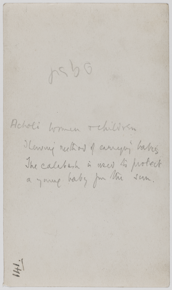 Acholi woman & children
Showing method of carrying baby
The calabash is used to protect
a young baby from the sun.